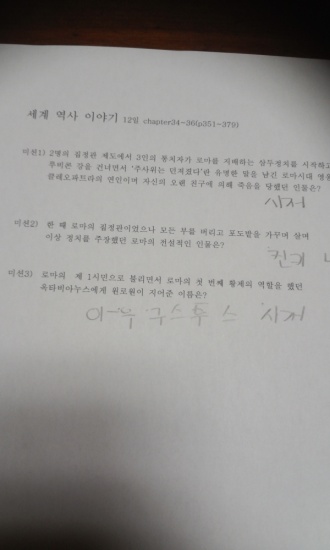 세계 역사 이야기 12일 chapter34-36(p351-379)
미션1) 2명의 집정관 제도에서 3인의 통치자가 로마를 지배하는 삼두정치를 시작하고
루비콘 강을 건너면서 '주사위는 던져졌다'란 유명한 말을 남긴 로마시대 영웅
클레오파트라의 연인이며 자신의 오랜 친구에 의해 죽음을 당했던 인물은?
시저
미션2) 한 때 로마의 집정관이었으나 모든 부를 버리고 포도밭을 가꾸며 살며
이상 정치를 주장했던 로마의 전설적인 인물은?
미션3) 로마의 제 1시민으로 불리면서 로마의 첫 번째 황제의 역할을 했던
옥타비아누스에게 원로원이 지어준 이름은?
아우구스투스 시저